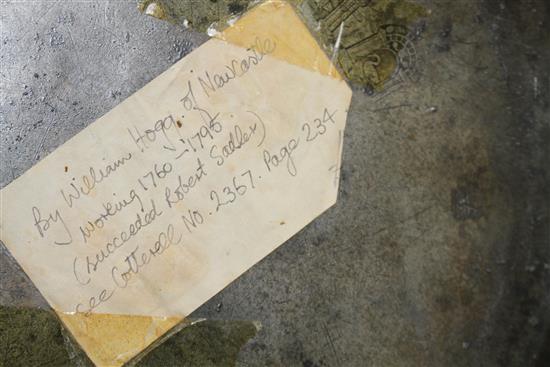 By William Hogg. of Newcastle
working 1760-1795
(succeeded Robert Sadler)
see Cotterell No. 2367. Page 234